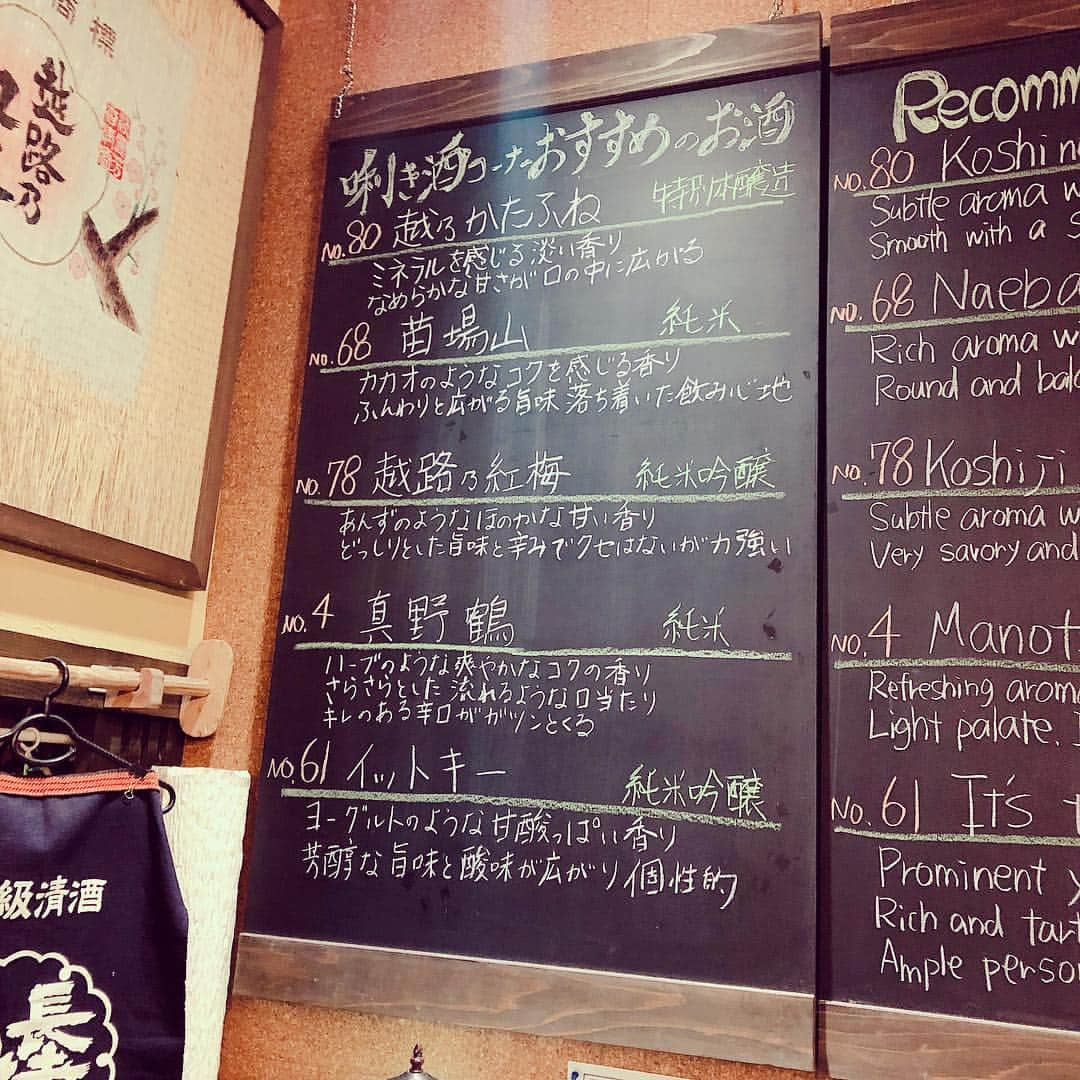 商標
越路乃
唎き酒コーナーおすすめのお酒
No.80 越乃かたふね 特別本醸造
ミネラルを感じる淡い香り
なめらかな甘さが口の中に広がる
No.68 苗場山 純米
カカオのようなコクを感じる香り
ふんわりと広がる旨味 落ち着いた飲み心地
No.78 越路乃紅梅 純米吟醸
あんずのようなほのかな甘い香り
どっしりとした旨味と辛みでクセはないが力強い
No.4 真野鶴 純米
ハーブのような爽やかなコクの香り
さらさらとした流れるような口当たり
キレのある辛口がガツンとくる
No.61 イットキー 純米吟醸
ヨーグルトのような甘酸っぱい香り
芳醇な旨味と酸味が広がり個性的
Recomm
No.80 Koshi n
Subtle aroma w
Smooth with a S
No.68 Naeba
Rich aroma w
Round and bala
No.78 Koshiji
Subtle aroma w
Very savory and
No.4 Manot
Refreshing aroma
Light palate.
No.61 It's
Prominent y
Rich and tart
Ample person
級清酒
長